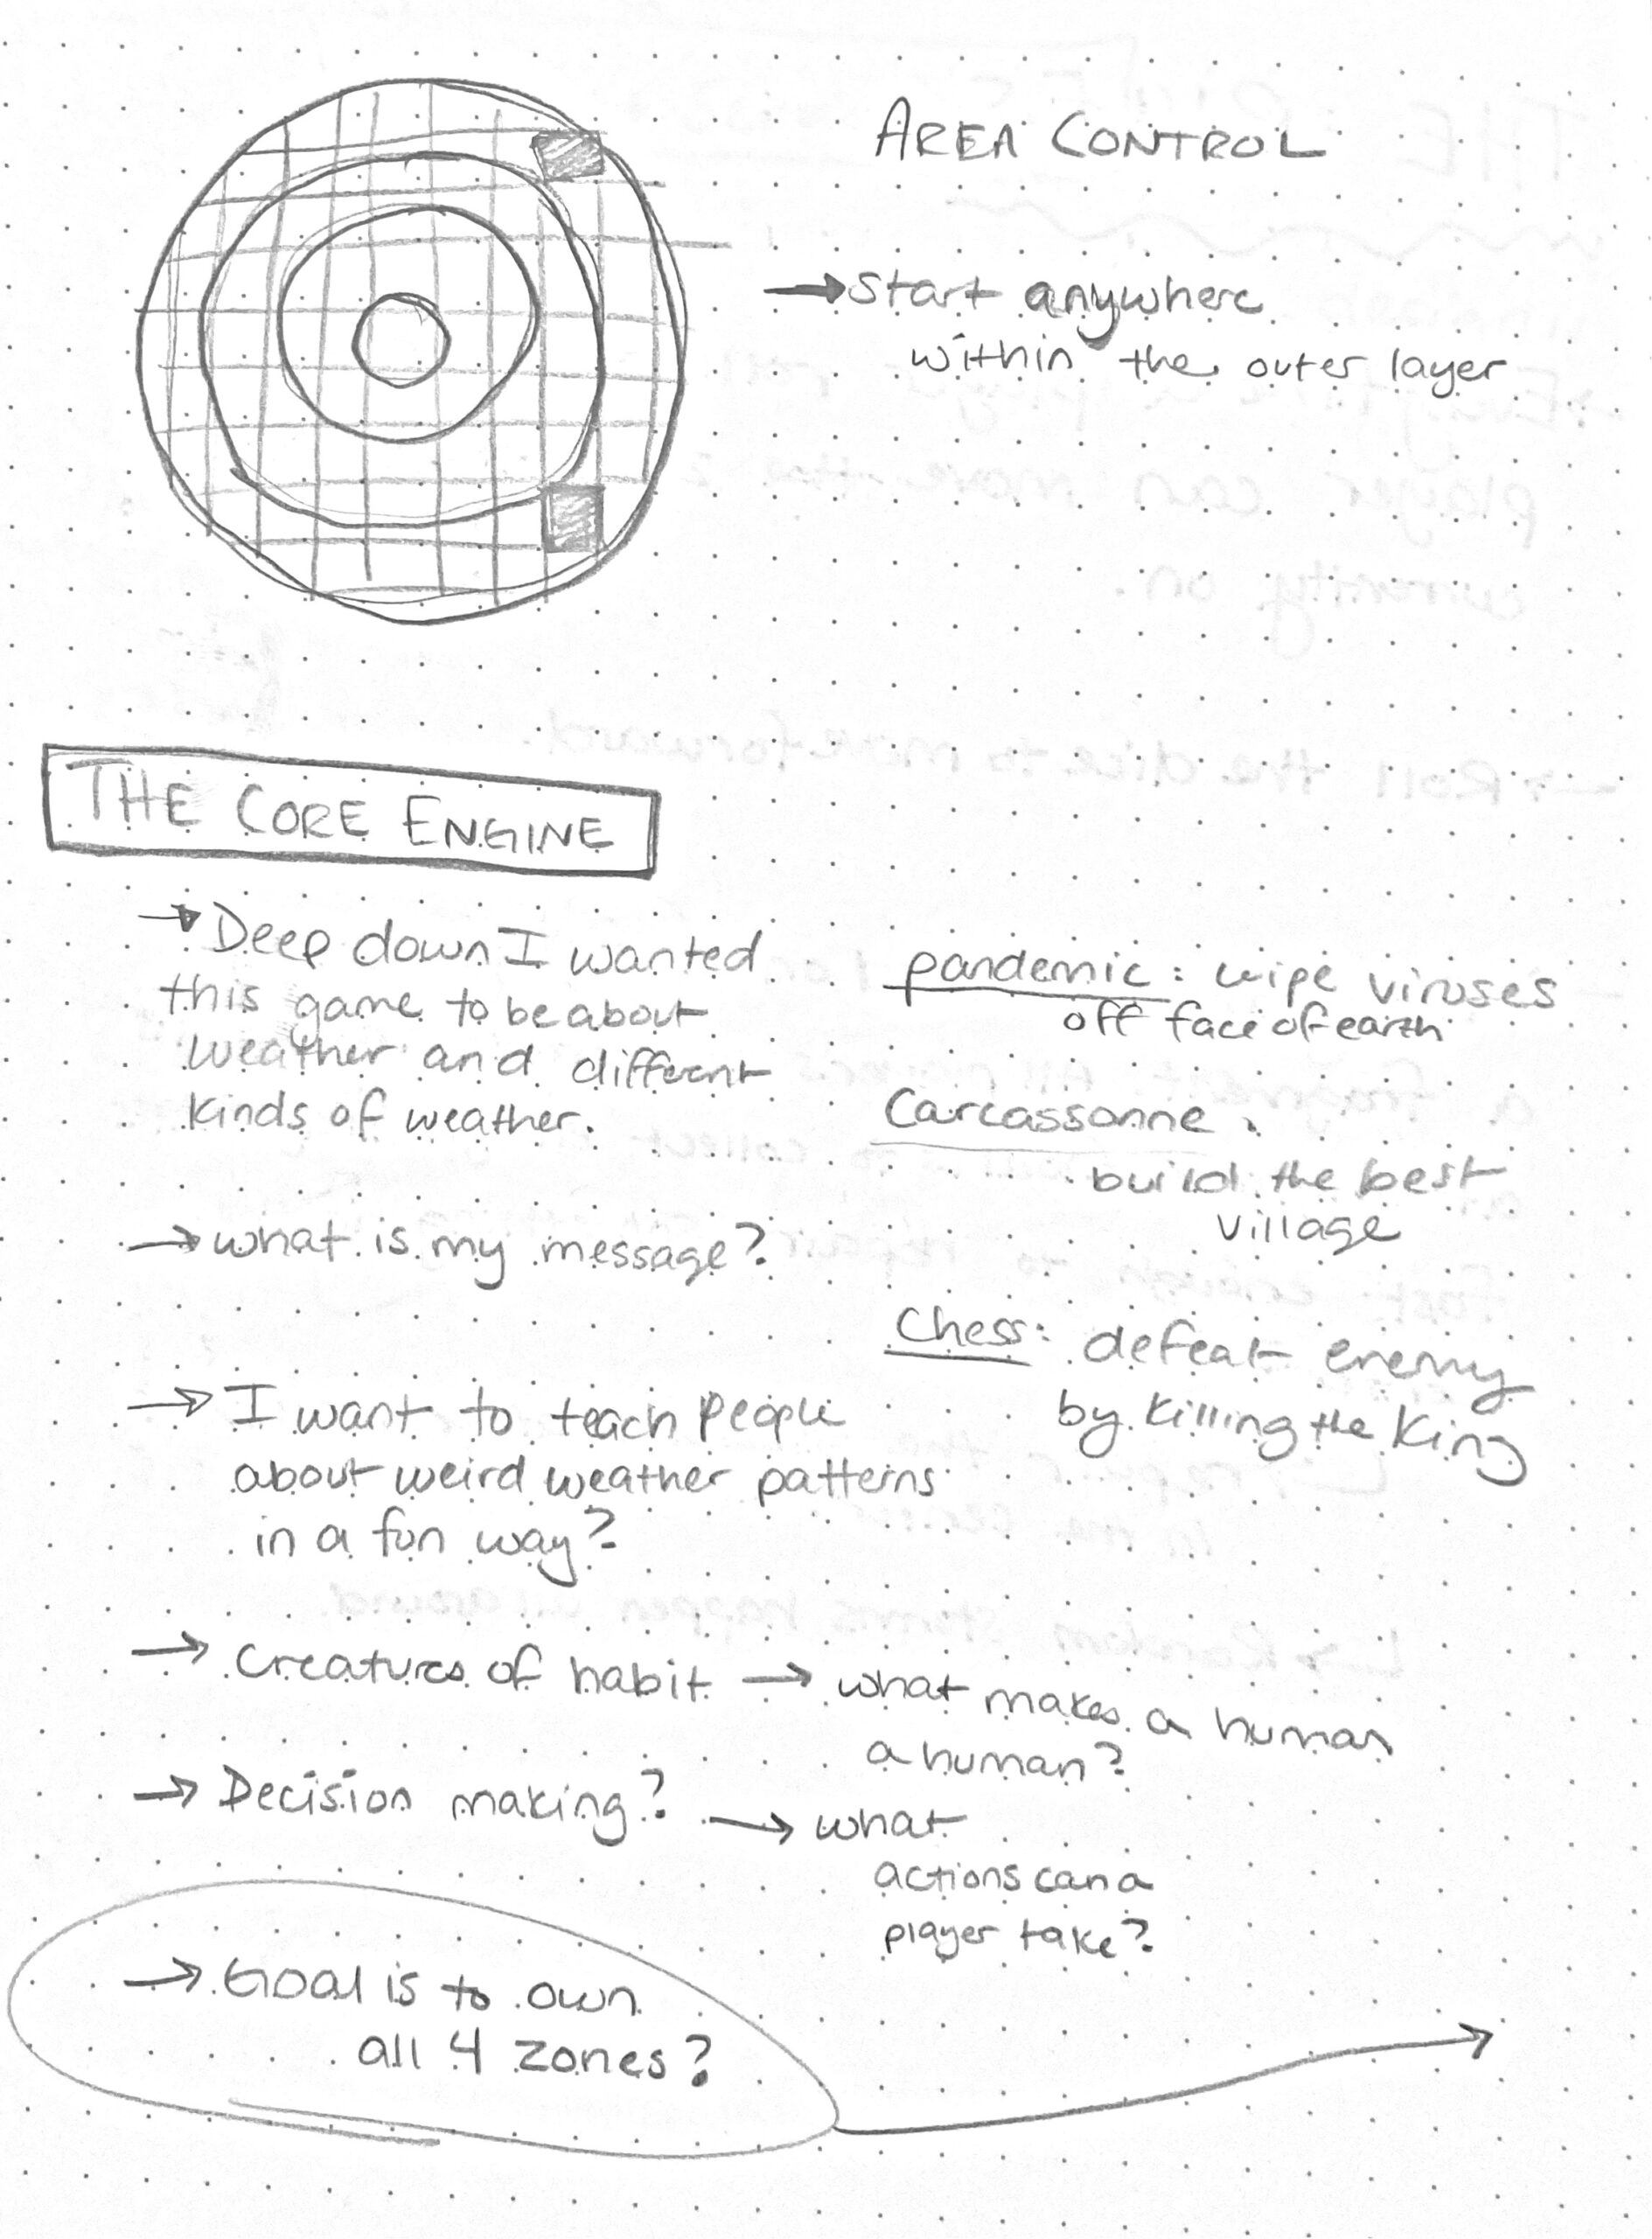 AREA CONTROL
→ Start anywhere
within the outer layer
THE CORE ENGINE
→ Deep down I wanted
this game to be about
weather and different
kinds of weather.
→ what is my message?
→ I want to teach people
about weird weather patterns
in a fun way?
pandemic: wipe viruses
off face of earth
Carcassonne:
build the best
village
Chess: defeat enemy
by killing the King
→ Creatures of habit → what makes a human
a human?
→ Decision making? → what
actions can a
player take?
→ Goal is to own
all 4 zones?